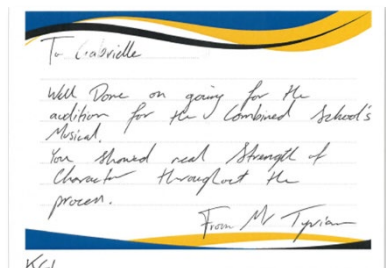 To Gabrielle
Well Done on going for the
audition for the Combined School's
Musical.
You showed real Strength of
Character throughout the
process.
From Mr